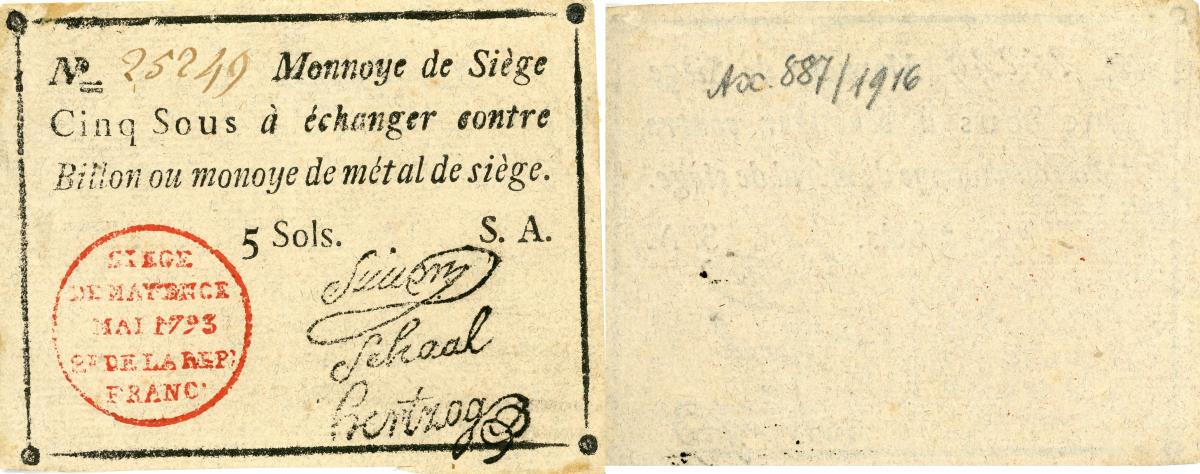 No 25249 Monnoye de Siège
Cinq Sous à échanger contre
Billon ou monoye de métal de siège.
5 Sols. S. A.
SIEGE
DE MAYENCE
MAI 1793
2E DE LA REP:
FRANC:
Simon
Schaal
hertzog
Ax. 887/1916